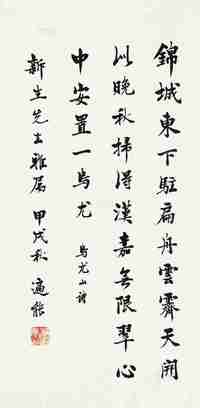 錦城東下駐扁舟雲霽天開
似晚秋掃得漢嘉無限翠心
中安置一烏尤 烏尤山詩
新生先生雅屬 甲戌秋 適能